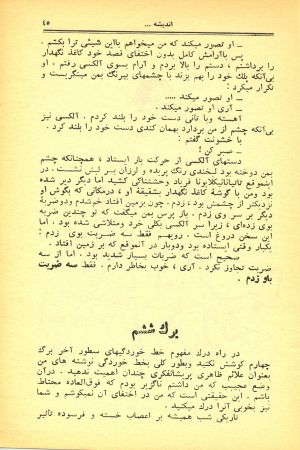 اندیشه ... ۴۵
ـ او تصور میکند که من میخواهم بااین شیئی ترا بکشم .
پس باآرامش کامل بدون اختفای قصد خود کاغذ نگهدار
را برداشتم ، دستم را بالا بردم و آرام بسوی آلکسی رفتم . او
بی‌آنکه پلك خود را بهم بزند با چشمهای بیرنگ بمن مینگریست و
تکرار میکرد :
ـ او تصور میکند .....
ـ آری او تصور میکند .
آهسته وبا تانی دست خود را بلند کردم . آلکسی نیز
بی‌آنکه چشم از من بردارد بهمان کندی دست خود را بلند کرد .
با خشونت گفتم :
ـ صبر کن !
دستهای آلکسی از حرکت باز ایستاد ، همچنانکه چشم
بمن دوخته بود لبخندی رنگ پریده و لرزان بر لبش نشست . در
اینموقع تاتیانانیکلایونا فریاد وحشتناکی کشید اما دیگر دیر شده
بود ومن با گوشهٔ کاغذ نگهدار بشقیقهٔ او ، درمکانی که بگوش او
نزدیکتر از چشمش بود ، زدم . چون بزمین افتاد خم‌شدم ودوضربهٔ
دیگر بر سر وی زدم . باز پرس بمن میگفت که تو چندین ضربه
بوی زده‌ای ، زیرا سر آلکسی بکلی خرد ومتلاشی شده بود . اما
این سخن دروغ است . رویهم فقط سه ضربت بوی زدم :
یکبار وقتی ایستاده بود ودوبار در آنموقع که بر زمین افتاد .
صحیح است که ضربات بسیار شدید بود . اما از سه
ضربت تجاوز نکرد . آری ، خوب بخاطر دارم . فقط سه ضربت
باو زدم .
برگ ششم
در راه درك مفهوم خط خوردگیهای سطور آخر برگ
چهارم کوشش نکنید وبطور کلی بخط خوردگی نوشته های من
بعنوان علائم ظاهری پریشانفکری چندان اهمیت ندهید . درآن
وضع عجیبی که من داشتم ناگزیر بودم که فوق‌العاده محتاط
باشم . این حقیقتی است که من در اختفای آن نمیکوشم و شما
نیز بخوبی آنرا درك میکنید .
تاریکی شب همیشه بر اعصاب خسته و فرسوده تاثیر